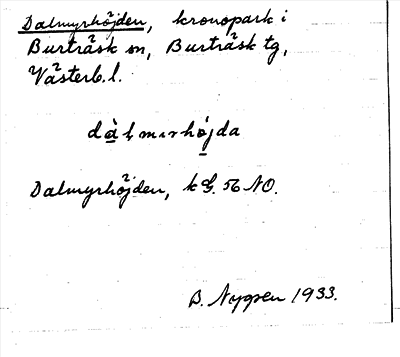 Dalmyrhöjden, kronopark i
Burträsk sn, Burträsk tg,
Västerb. l.
Dalmyrhöjden, k bl. 56 NO.
B. Nygren 1933.